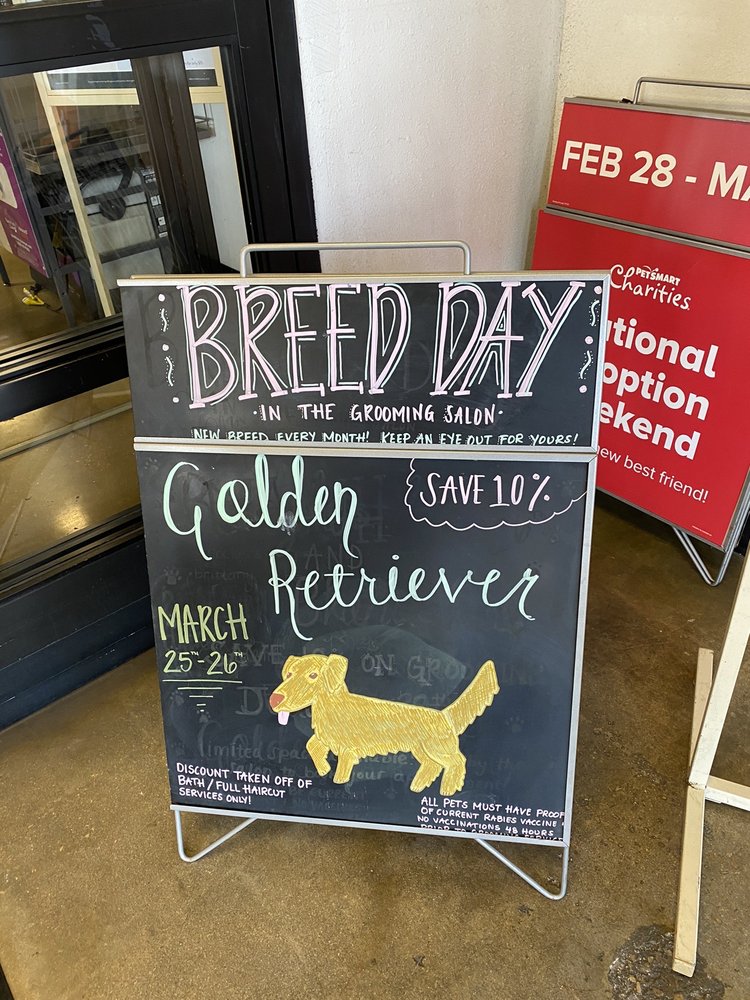 BREED DAY
IN THE GROOMING SALON
NEW BREED EVERY MONTH! KEEP AN EYE OUT FOR YOURS!
SAVE 10%
Golden
Retriever
MARCH
25TH-26TH
DISCOUNT TAKEN OFF OF
BATH/FULL HAIRCUT
SERVICES ONLY!
ALL PETS MUST HAVE PROOF
OF CURRENT RABIES VACCINE
NO VACCINATIONS 48 HOURS
PRIOR TO GROOMING SERVICE
FEB 28 - MA
PETSMART
Charities
tional
option
ekend
ew best friend!